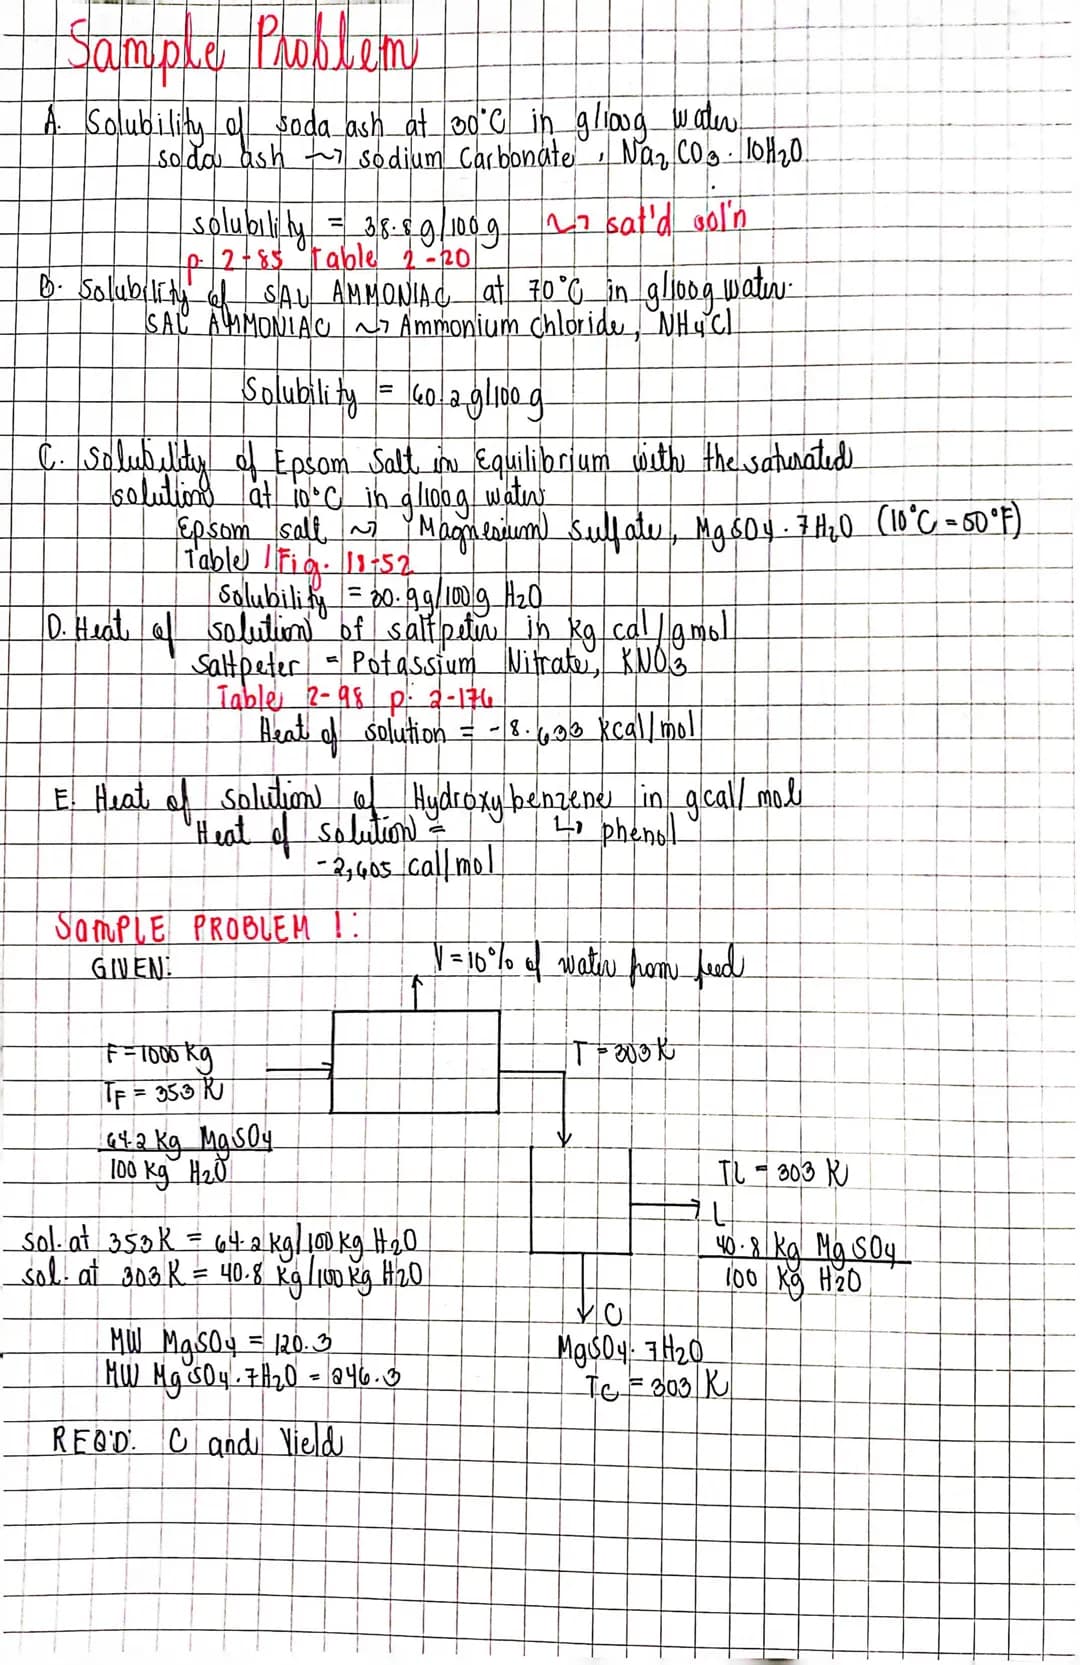 Sample Problem
A. Solubility of soda ash at 30°C in g/100g water
soda ash ~> sodium Carbonate, Na2CO3·10H2O
solubility = 38.8 g/100 g ~> sat'd sol'n
p. 2-85 Table 2-20
B. Solubility of SAL AMMONIAC at 70°C in g/100g water.
SAL AMMONIAC ~> Ammonium chloride, NH4Cl
Solubility = 60.2 g/100 g
C. Solubility of Epsom Salt in Equilibrium with the saturated
solution at 10°C in g/100g water
Epsom salt ~> Magnesium Sulfate, MgSO4·7H2O (10°C = 50°F)
Table / Fig. 18-52
Solubility = 30.9g/100g H2O
D. Heat of solution of saltpeter in kg cal/gmol
Saltpeter = Potassium Nitrate, KNO3
Table 2-98 p. 2-176
Heat of solution = -8.633 kcal/mol
E. Heat of solution of Hydroxybenzene in gcal/mol
Heat of solution = ↳ phenol
-2,605 cal/mol
SAMPLE PROBLEM 1:
GIVEN:
V = 10% of water from feed
F = 1000 kg
T = 303 K
TF = 353 K
64.2 kg MgSO4
100 kg H2O
TL = 303 K
L
sol. at 353K = 64.2 kg/100 kg H2O
40.8 kg MgSO4
sol. at 303K = 40.8 kg/100 kg H2O
100 kg H2O
C
MW MgSO4 = 120.3
MgSO4·7H2O
MW MgSO4·7H2O = 246.3
TC = 303 K
REQ'D: C and Yield